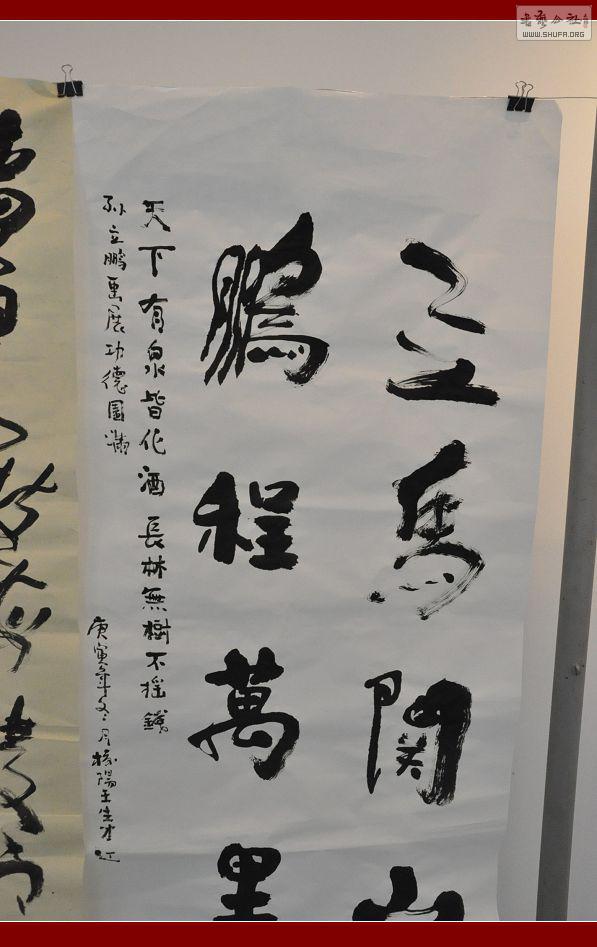 书艺公社
WWW.SHUFA.ORG
立馬関山
鵬程萬里
天下有泉皆化酒 長林無樹不摇錢
孙立鵬畫展功德圓满
庚寅年冬月 陽王生才